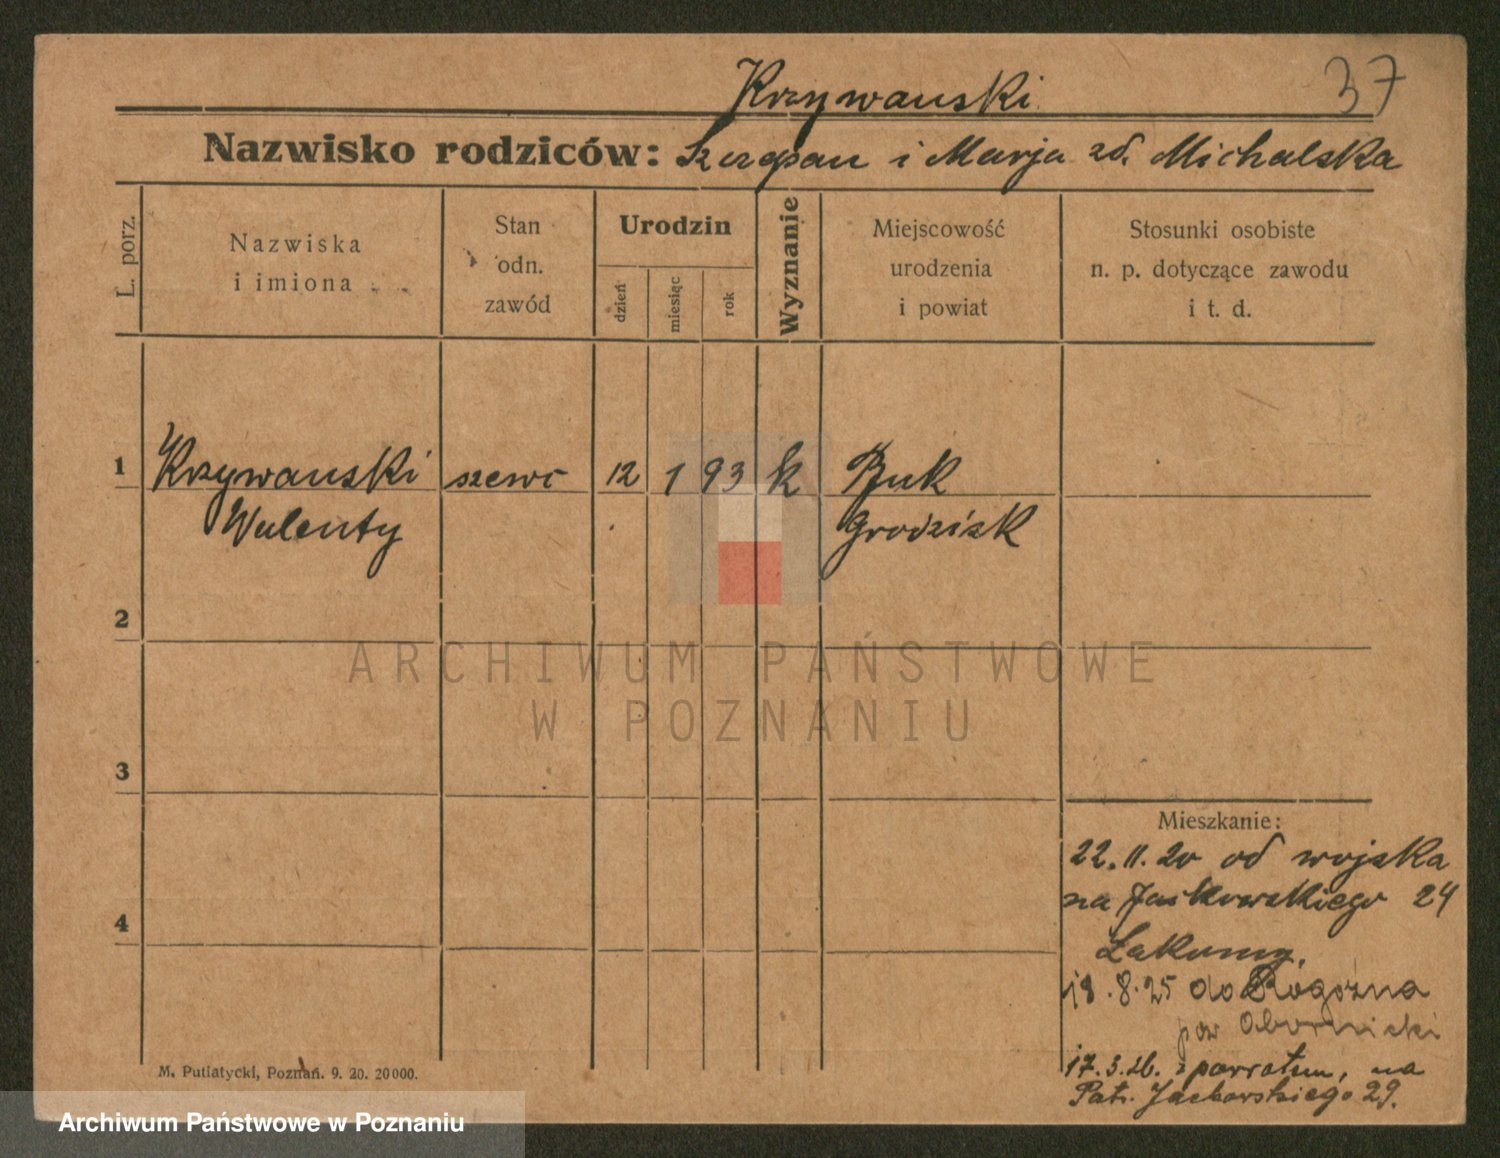 Krzywański 37
Nazwisko rodziców: Szczepan i Marja zd. Michalska
L. porz.
Nazwiska
i imiona
Stan
odn.
zawód
Urodzin
dzień
miesiąc
rok
Wyznanie
Miejscowość
urodzenia
i powiat
Stosunki osobiste
n. p. dotyczące zawodu
i t. d.
1 Krzywański szewc 12 1 93 k Buk
Walenty Grodzisk
2
3
4
Mieszkanie:
22. 11. 20 od wojska
na Jackowskiego 24
18. 8. 25 do Rogoźna
pow Obornicki
17. 3. 26. z powrotem, na
Patr. Jackowskiego 29.
M. Putiatycki, Poznań. 9. 20. 20000.
ARCHIWUM PAŃSTWOWE
W POZNANIU
Archiwum Państwowe w Poznaniu